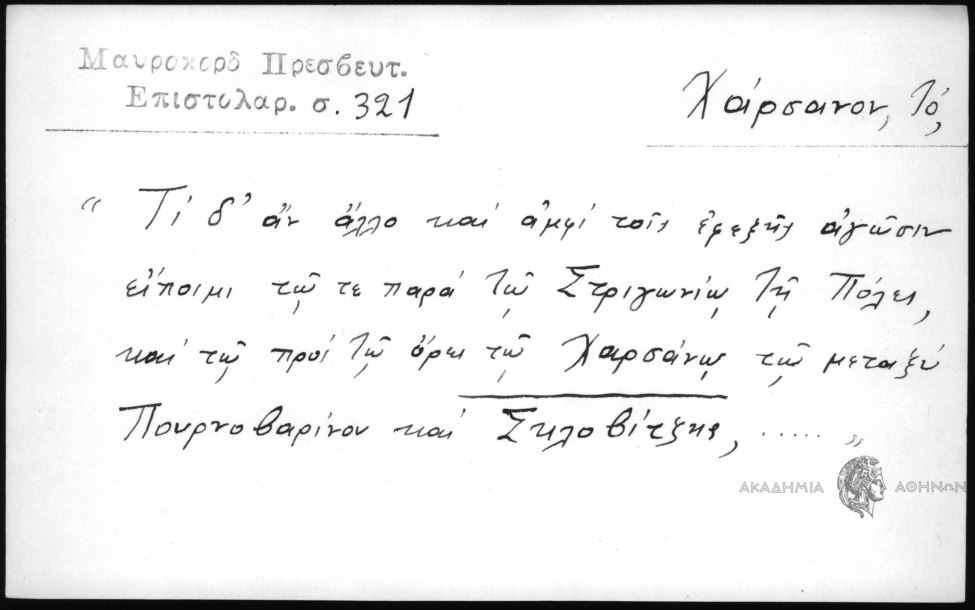 Μαυροκορδ Πρεσβευτ.
Επιστολαρ. σ. 321
Χάρσανον, Τό,
“ Τί δ’ ἄν ἄλλο καί ἀμφί τοῖς ἐφεξῆς ἀγῶσιν
εἴποιμι τῷ τε παρά τῷ Στριγωνίῳ τῇ Πόλει,
καί τῷ πρός τῷ ὄρει τῷ Χαρσάνῳ τῷ μεταξύ
Πουρνοβαρίνου καί Σικλοβίτζης, ..... „
ΑΚΑΔΗΜΙΑ ΑΘΗΝΩΝ